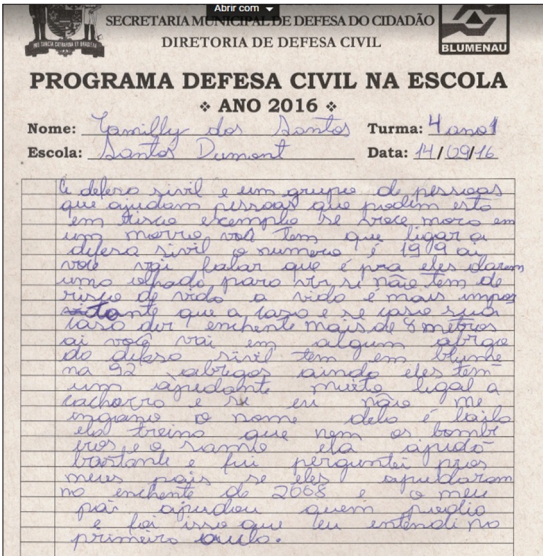 Abrir com
SECRETARIA MUNICIPAL DE DEFESA DO CIDADÃO
DIRETORIA DE DEFESA CIVIL
BLUMENAU
PROGRAMA DEFESA CIVIL NA ESCOLA
❖ ANO 2016 ❖
Nome: Tamilly dos Santos Turma: 4 ano 1
Escola: Santos Dumont Data: 14/09/16
defesa sivil é um grupo de pessoas
que ajudam pessoas que podim está
em risco exemplo se voce mora em
um morrio tem que ligar a
difesa sivil o numero é 1999 ai
você vai falar que é pra eles darem
uma olhada para vir si não tem de
risco de vida a vida é mais impor
tante que a caza e se caso sua
casa der enchente mais de 8 metros
ai você vai em algum abrigo
da difesa sivil tem em blume
na 92 abrigos ainda eles tem
um ajudante muito legal a
cachorra e si eu não me
engano o nome dela é laila
ela treina que nem os bombe
iros e o samu ela ajuda
bastante e fui perguntei pros
meus pais se eles ajudaram
na enchente de 2008 e o meu
pai ajudou quem pudio
e foi isso que eu entendi no
primeiro aula.